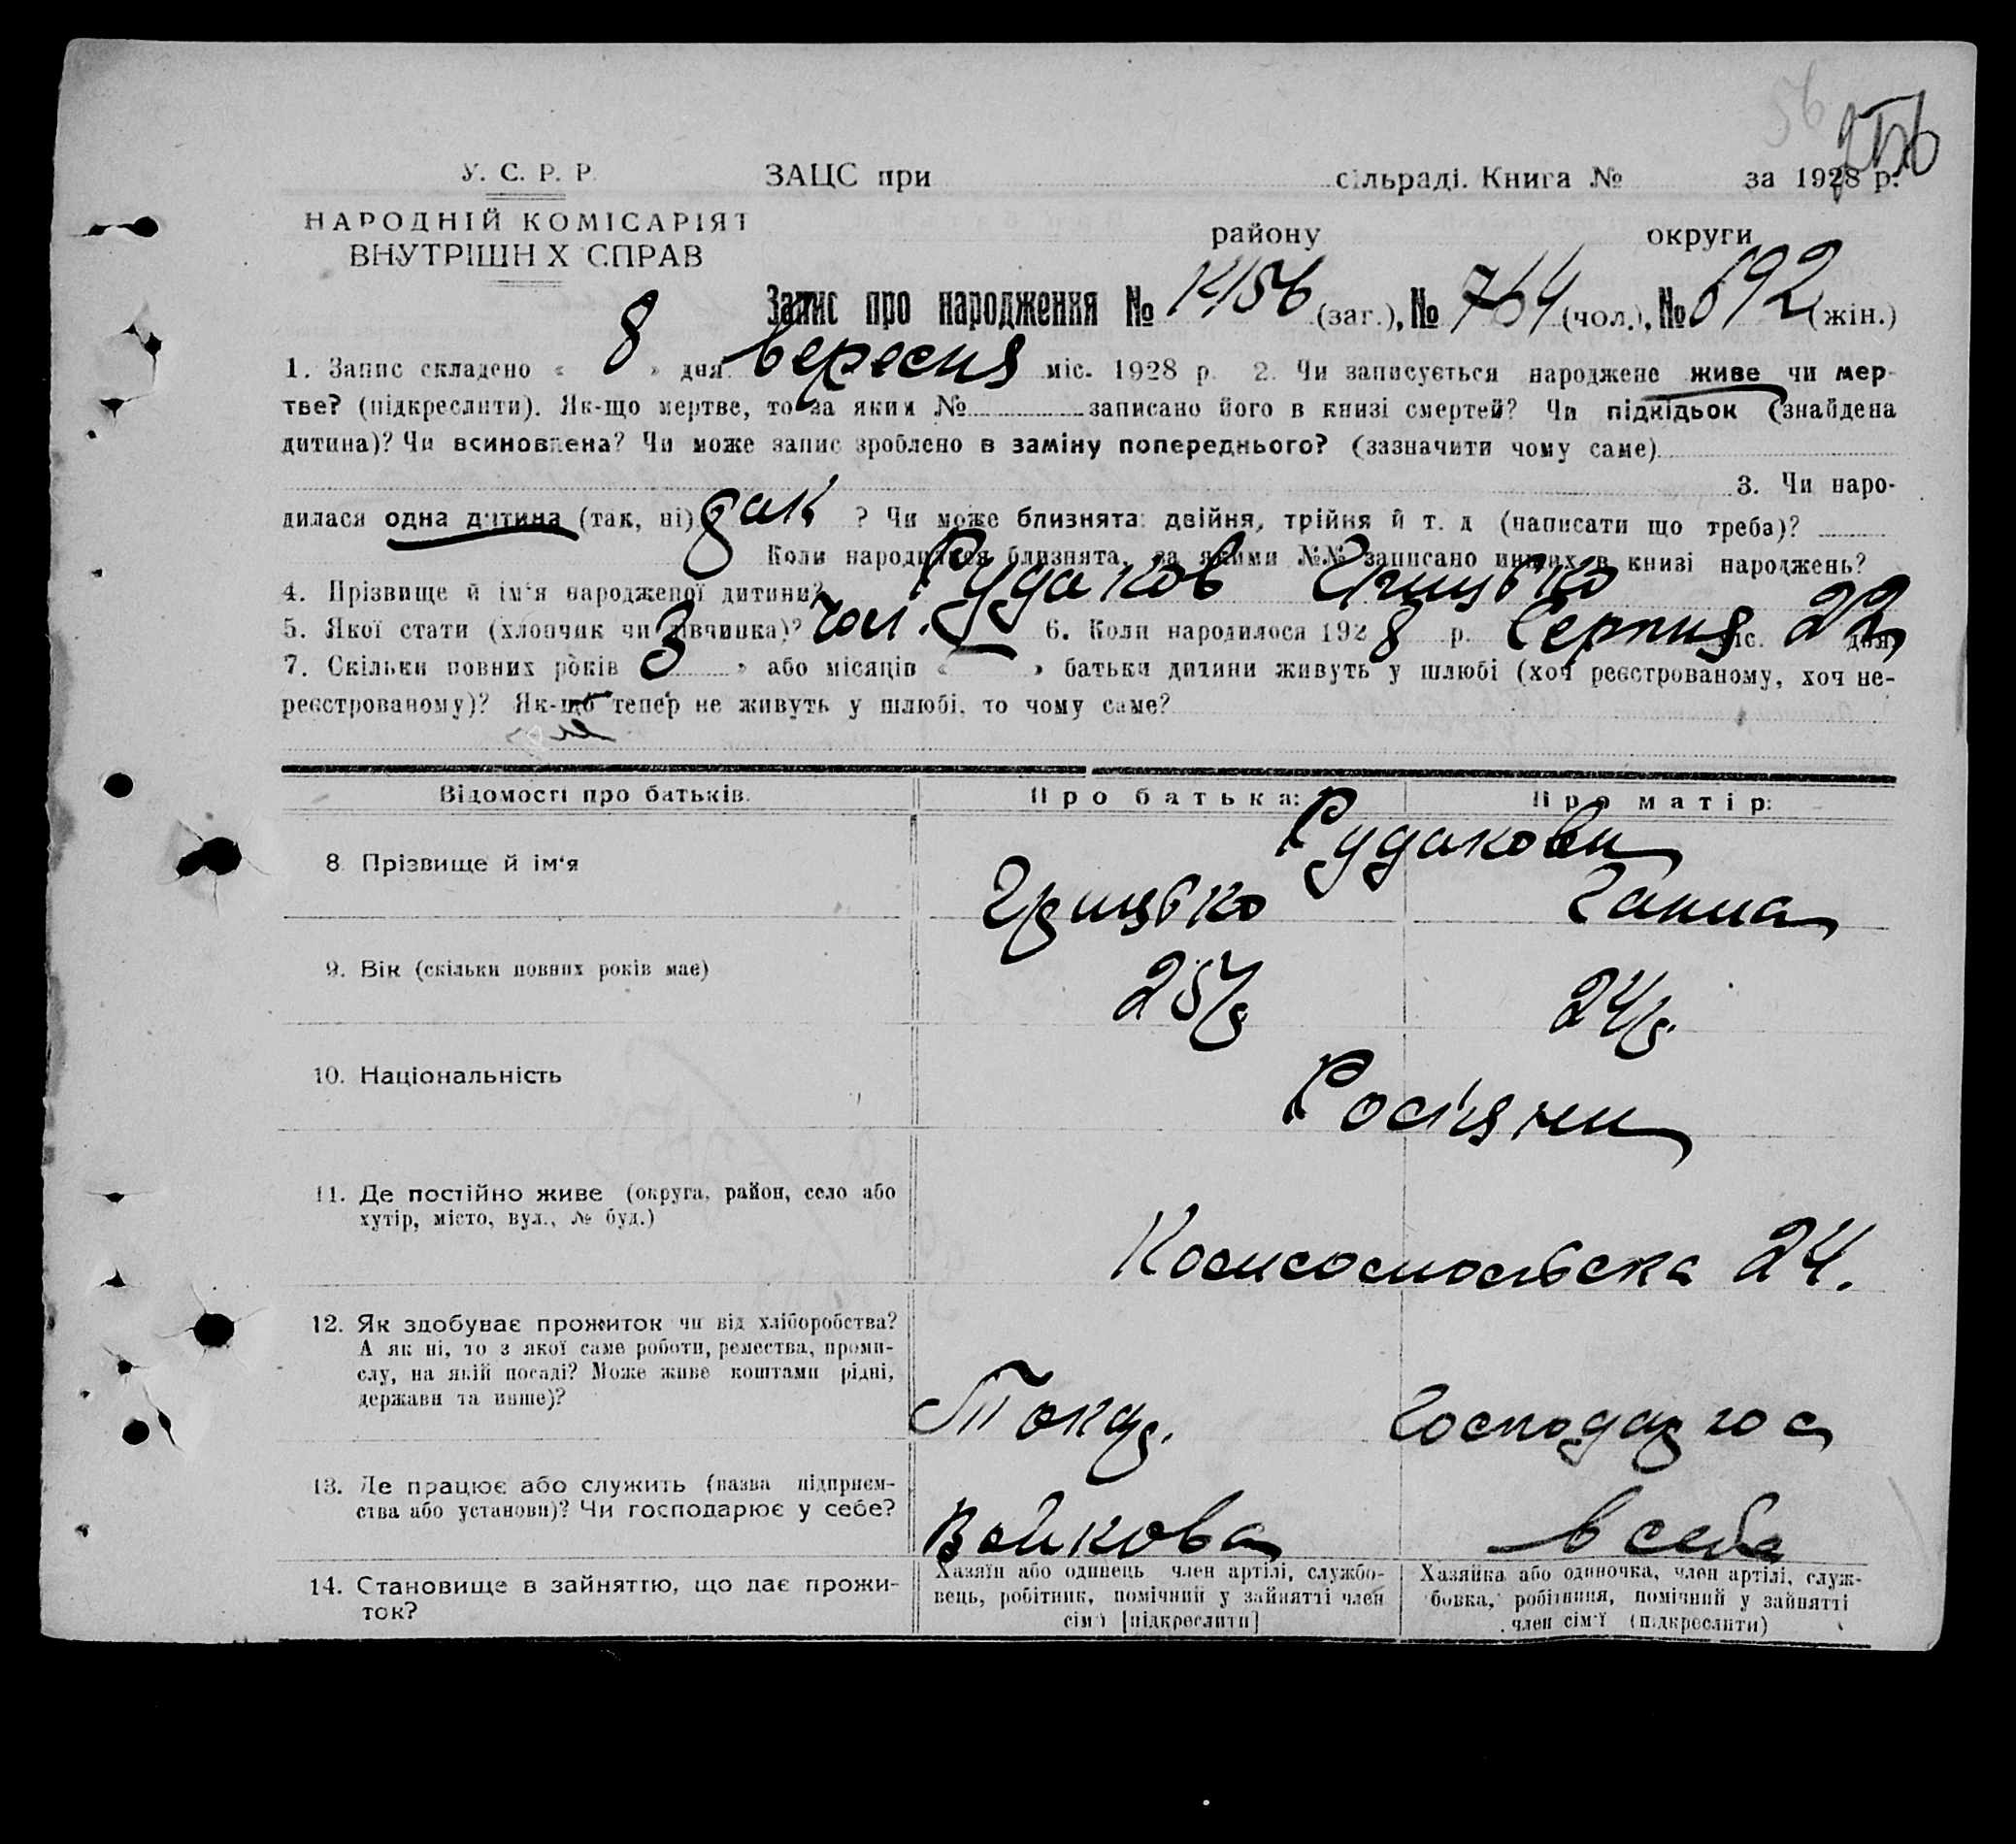 56
256
У. С. Р. Р. ЗАЦС при сільраді. Книга № за 1928 р.
НАРОДНІЙ КОМІСАРІЯТ
району округи
ВНУТРІШН Х СПРАВ
Запис про народження № 1456 (заг.), № 764 (чол.), № 692 (жін.)
1. Запис складено « 8 » дня вересня міс. 1928 р. 2. Чи записується народжене живе чи мер-
тве? (підкреслити). Як-що мертве, то за яким № записано його в книзі смертей? Чи підкідьок (знайдена
дитина)? Чи всиновлена? Чи може запис зроблено в заміну попереднього? (зазначити чому саме)
3. Чи наро-
дилася одна дитина (так, ні) так ? Чи може близнята: двійня, трійня й т. д (написати що треба)?
Коли народилися близнята, за якими №№ записано инших в книзі народжень?
4. Прізвище й ім'я народженої дитини? Рудаков Грицько
5. Якої стати (хлопчик чи дівчинка)? чол. 6. Коли народилося 1928 р. Серпня міс. 22 дня
7. Скільки повних років 3 » або місяців « » батьки дитини живуть у шлюбі (хоч реєстрованому, хоч не-
реєстрованому)? Як-що тепер не живуть у шлюбі, то чому саме?
Відомості про батьків. Про батька: Про матір:
8 Прізвище й ім'я Рудакови
Грицько Ганна
9. Вік (скільки повних років має) 25 р 24 р.
10. Національність Росіяни
11. Де постійно живе (округа, район, село або
хутір, місто, вул., № буд.)
Комсомольська 24.
12. Як здобуває прожиток чи від хліборобства?
А як ні, то з якої саме роботи, ремества, проми-
слу, на якій посаді? Може живе коштами рідні,
держави та инше)?
Токар. Господарює
13. Де працює або служить (назва підприєм-
ства або установи)? Чи господарює у себе?
Войкова в себе
14. Становище в зайняттю, що дає прожи-
ток?
Хазяїн або одинець член артілі, службо-
вець, робітник, помічний у зайнятті член
сім'ї [підкреслити]
Хазяйка або одиночка, член артілі, служ-
бовка, робітниця, помічний у зайнятті
член сім'ї (підкреслити)